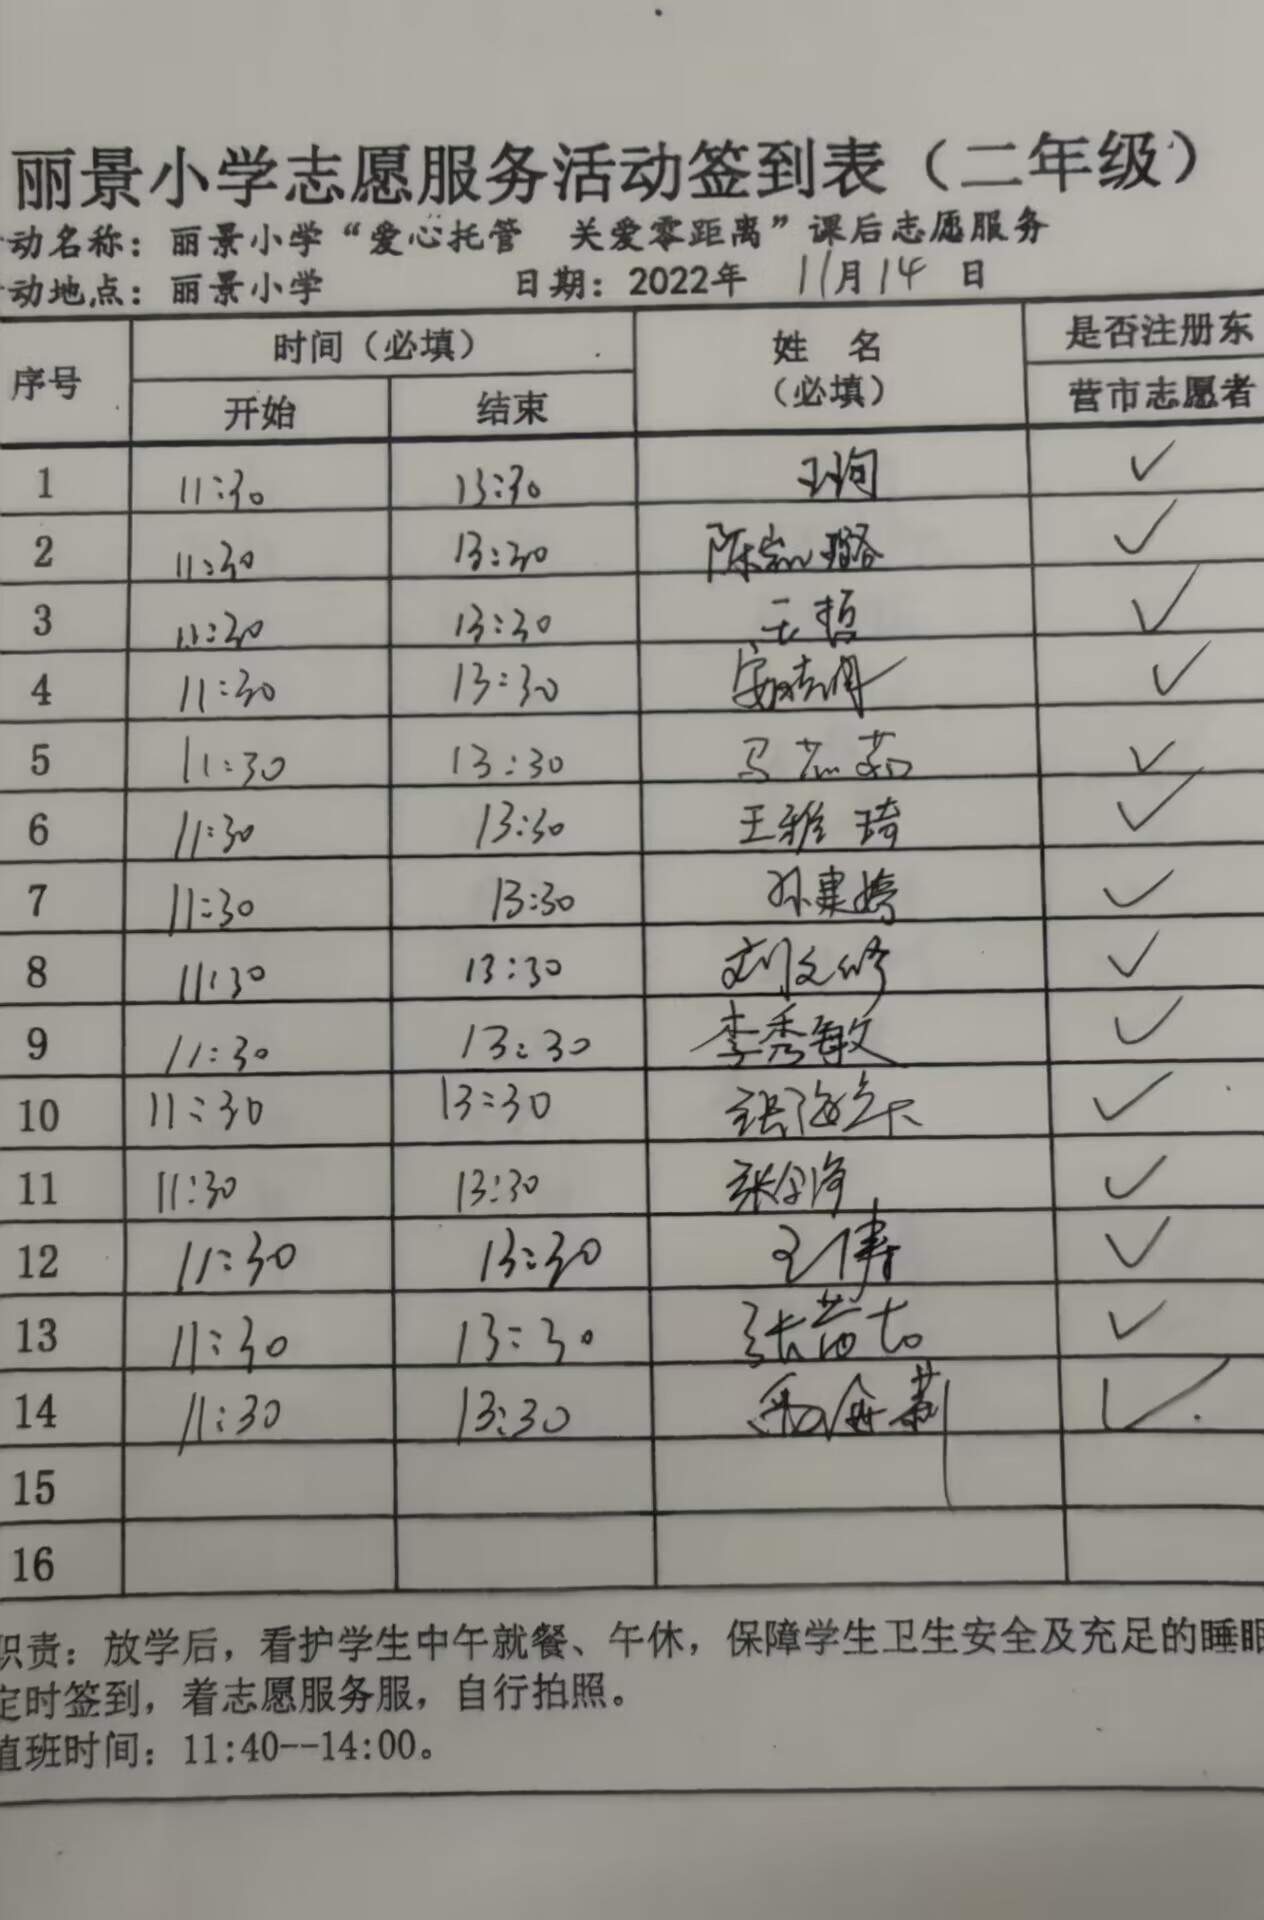 丽景小学志愿服务活动签到表（二年级）
动名称：丽景小学“爱心托管 关爱零距离”课后志愿服务
动地点：丽景小学 日期：2022年 11月14日
序号 时间（必填） 姓 名（必填） 是否注册东营市志愿者
开始 结束
1 11:30 13:30 王珣 ✓
2 11:30 13:30 陈 璐 ✓
3 11:30 13:30 王哲 ✓
4 11:30 13:30 ✓
5 11:30 13:30 马 茹 ✓
6 11:30 13:30 王雅琦 ✓
7 11:30 13:30 孙建婷 ✓
8 11:30 13:30 刘文修 ✓
9 11:30 13:30 李秀敏 ✓
10 11:30 13:30 张海 ✓
11 11:30 13:30 张 ✓
12 11:30 13:30 王倩 ✓
13 11:30 13:30 张 ✓
14 11:30 13:30 ✓
15
16
职责：放学后，看护学生中午就餐、午休，保障学生卫生安全及充足的睡眠
定时签到，着志愿服务服，自行拍照。
值班时间：11:40--14:00。